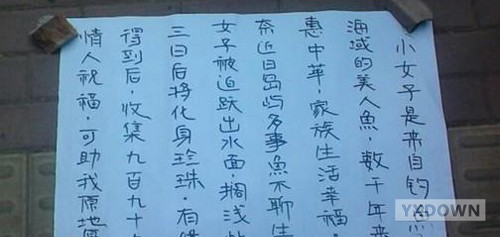 小女子是来自钓
海域的美人魚，数千年来
惠中华，家族生活幸福，
奈近日岛屿多事魚不聊生
女子被迫跃出水面，搁浅
三日后将化身珍珠。有缘
得到后，收集九百九十
情人祝福，可助我原地
YXDOWN